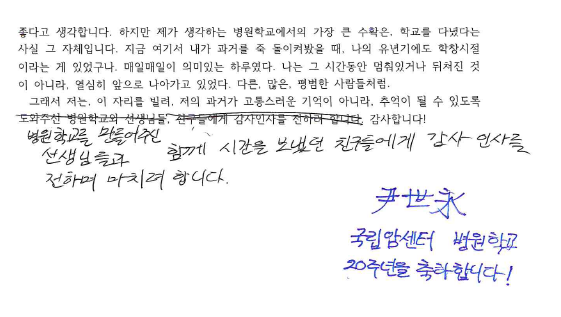 좋다고 생각합니다. 하지만 제가 생각하는 병원학교에서의 가장 큰 수확은, 학교를 다녔다는
사실 그 자체입니다. 지금 여기서 내가 과거를 죽 돌이켜봤을 때, 나의 유년기에도 학창시절
이라는 게 있었구나. 매일매일이 의미있는 하루였다. 나는 그 시간동안 멈춰있거나 뒤쳐진 것
이 아니라, 열심히 앞으로 나아가고 있었다. 다른, 많은, 평범한 사람들처럼.
그래서 저는, 이 자리를 빌려, 저의 과거가 고통스러운 기억이 아니라, 추억이 될 수 있도록
도와주신 병원학교와 선생님들, 친구들에게 감사인사를 전하려 합니다. 감사합니다!
병원학교를 만들어주신
선생님들과 함께 시간을 보냈던 친구들에게 감사 인사를
전하며 마치려 합니다.
尹世永
국립암센터 병원학교
20주년을 축하합니다!